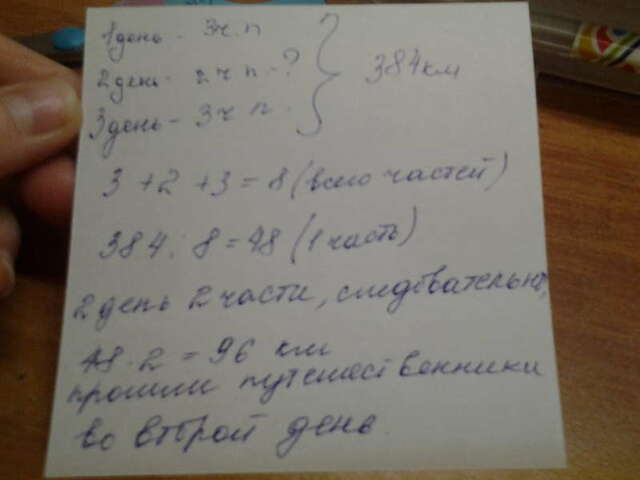 1 день - 3 ч. п
2 день - 2 ч п - ?
3 день - 3 ч п -
384 км
3 + 2 + 3 = 8 (всего частей)
384 : 8 = 48 (1 часть)
2 день 2 части, следовательно,
48 · 2 = 96 км
прошли путешественники
во второй день.